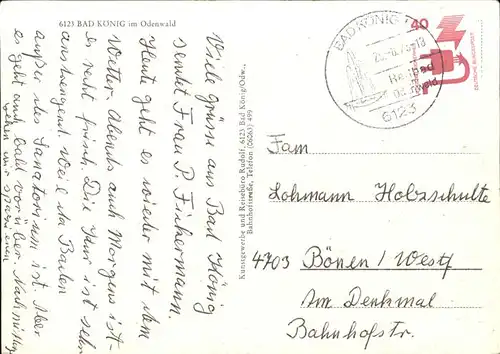 6123 BAD KÖNIG im Odenwald
Viele Grüsse aus Bad König
sendet Frau P. Fichermann
Heute geht es wieder mit dem
Wetter. Abends auch Morgens ist-
es recht frisch. Die Kur ist sehr
anstrengend. Weil da Baden
außer des Sanatorium ist. Aber
es geht auch bald vorüber. Nachmittag
gehen wir spazieren
Kunstgewerbe und Reisebüro Rudolf, 6123 Bad König/Odw.,
Bahnhofstraße, Telefon (06063) 499
BAD KÖNIG
Heilbad
Odenwald
6123
40
DEUTSCHE BUNDESPOST
Fam
Lohmann Holzschulte
4703 Bönen/Westf
Am Denkmal
Bahnhofstr.